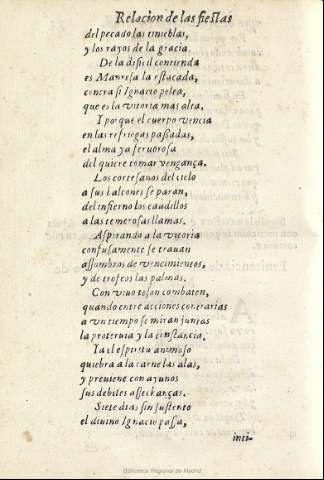 Relacion de las fiestas
del pecado las tinieblas,
y los rayos de la gracia.
De la dificil contienda
es Manresa la estacada,
contra si Ignacio pelea,
que es la vitoria mas alta.
I porque el cuerpo vencia
en las refriegas passadas,
el alma ya fervorosa
del quiere tomar vengança.
Los cortesanos del cielo
a sus balcones se paran,
del infierno los caudillos
a las temerosas llamas.
Aspirando a la vitoria
confusamente se travan
assombros de vencimientos,
y de trofeos las palmas.
Con vivo teson combaten,
quando entre acciones contrarias
a un tiempo se miran juntas
la protervia y la constancia.
Ya el espiritu animoso
quiebra a la carne las alas,
y previene con ayunos
sus debiles assechanças.
Siete dias sin sustento
el divino Ignacio passa,
inti-
Biblioteca Regional de Madrid